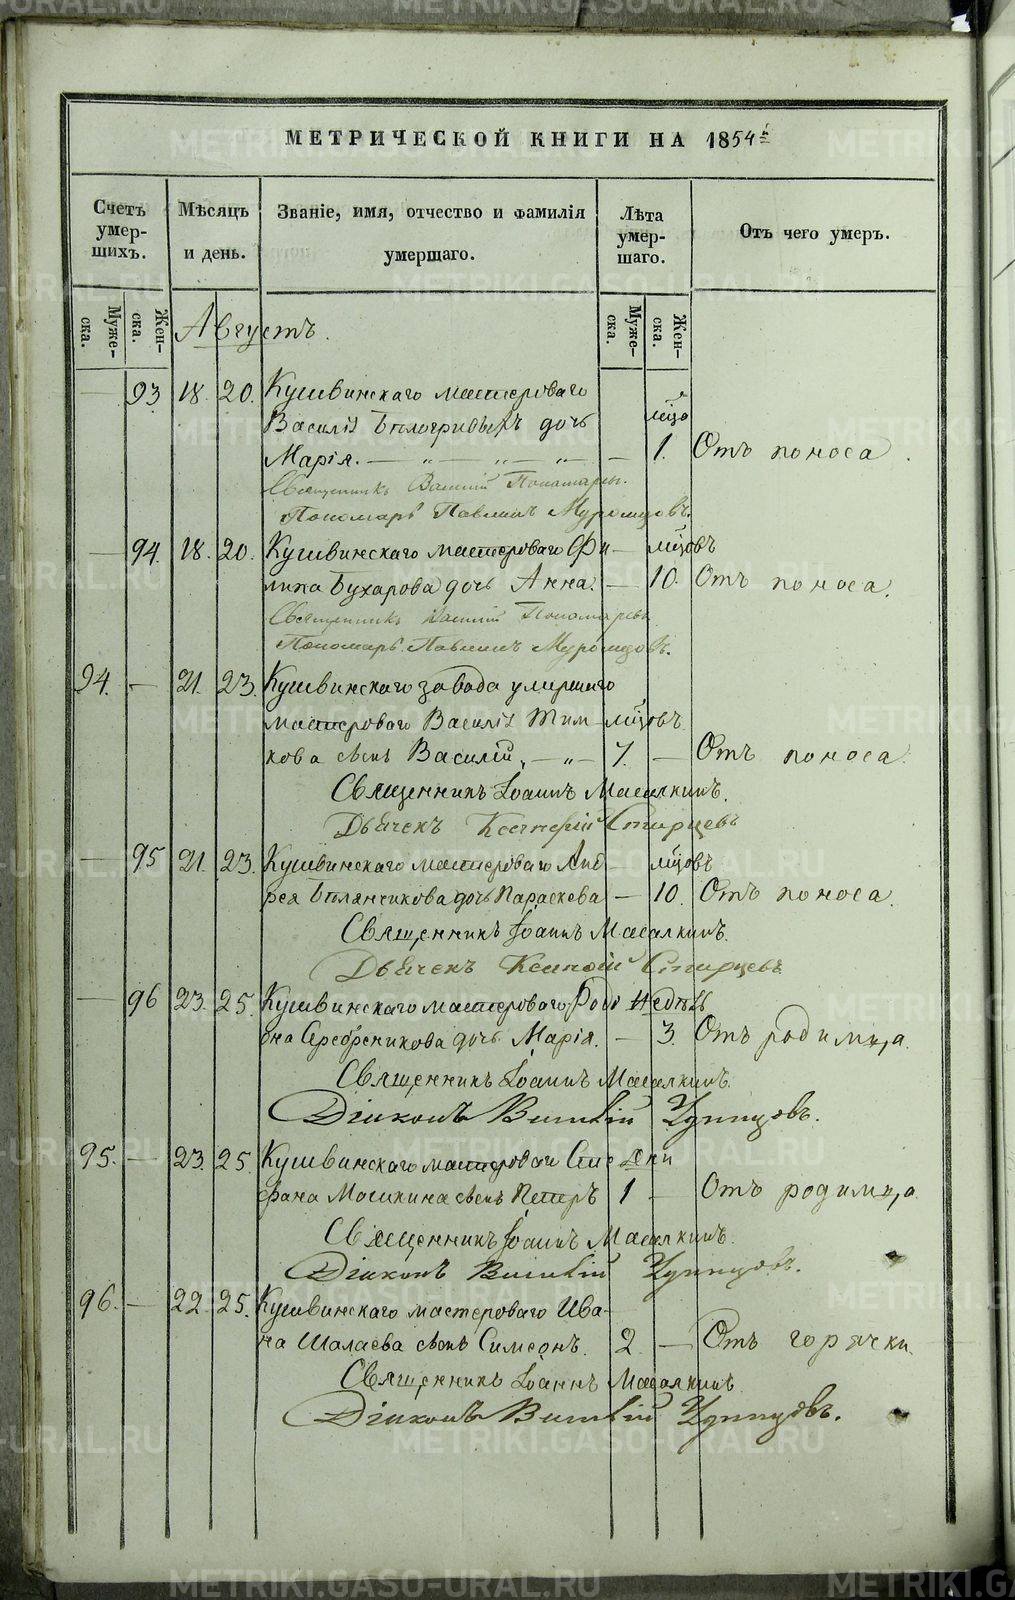 МЕТРИЧЕСКОЙ КНИГИ НА 1854й
Счетъ умер-шихъ.
Мѣсяцъ и день.
Званіе, имя, отчество и фамилія умершаго.
Лѣта умер-шаго.
Отъ чего умеръ.
Муже-ска.
Жен-ска.
Муже-ска.
Жен-ска.
Августъ.
— 93 18. 20. Кушвинскаго мастероваго
Василія Бѣлогривыхъ дочь мѣсо
Марія. — „ — „ — „ — — 1. Отъ поноса.
Священникъ Василій Пономаревъ.
Пономарь Павлинъ Муромцовъ.
— 94. 18. 20. Кушвинскаго мастероваго Фи — мѣсовъ
липа Бухарова дочь Анна. — 10. Отъ поноса.
Священникъ Василій Пономаревъ
Пономарь Павлинъ Муромцовъ.
94. — 21. 23. Кушвинскаго завода умершаго
мастероваго Василія Тим- мѣсовъ
кова сынъ Василій, — „ — 7. — Отъ поноса.
Священникъ Іоаннъ Масалкинъ.
Дьячекъ Старцевъ
— 95 21. 23. Кушвинскаго мастероваго Анд мѣсовъ
рея Бѣлянчикова дочь Параскева — 10. Отъ поноса.
Священникъ Іоаннъ Масалкинъ.
Дьячекъ Старцевъ
— 96 23. 25. Кушвинскаго мастероваго Роді Недѣль
она Серебреникова дочь Марія. — 3. Отъ родимца.
Священникъ Іоаннъ Масалкинъ.
Діаконъ Виталій
95. — 23. 25. Кушвинскаго мастероваго Сте дни
фана Мосикина сынъ Петръ 1 — Отъ родимца.
Священникъ Іоаннъ Масалкинъ.
Діаконъ Виталій
96. — 22. 25. Кушвинскаго мастероваго Ива-
на Шалаева сынъ Симеонъ. 2. — Отъ горячки.
Священникъ Іоаннъ Масалкинъ.
Діаконъ Виталій
METRIKI.GASO-URAL.RU